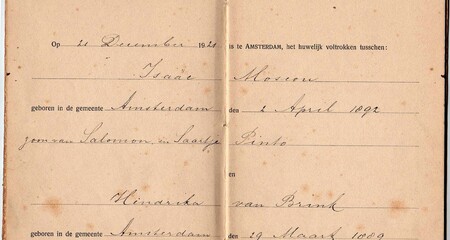 Op 21 December 1921 is te AMSTERDAM, het huwelijk voltrokken tusschen:
Isaac Moscou
geboren in de gemeente Amsterdam den 2 April 1892
zoon van Salomon, en Saartje Pinto
Hindrika van Brink
geboren in de gemeente Amsterdam den 29 Maart 1889